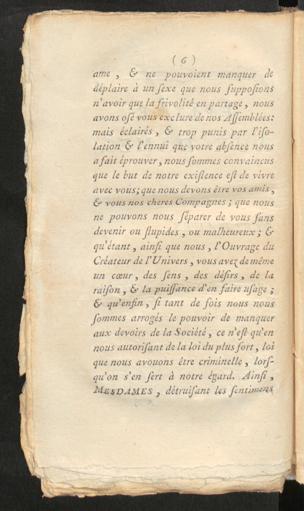 ( 6 )
ame , & ne pouvoient manquer de
déplaire à un ſexe que nous ſuppoſions
n'avoir que la frivolité en partage , nous
avons oſé vous exclure de nos Aſſemblées:
mais éclairés , & trop punis par l'iſo-
lation & l'ennui que votre abſence nous
a fait éprouver , nous ſommes convaincus
que le but de notre exiſtence eſt de vivre
avec vous ; que nous devons être vos amis ,
& vous nos cheres Compagnes ; que nous
ne pouvons nous ſéparer de vous ſans
devenir ou ſtupides , ou malheureux ; &
qu'étant , ainſi que nous , l'Ouvrage du
Créateur de l'Univers , vous avez de même
un cœur , des ſens , des déſirs , de la
raiſon , & la puiſſance d'en faire uſage ;
& qu'enfin , ſi tant de fois nous nous
ſommes arrogés le pouvoir de manquer
aux devoirs de la Société , ce n'eſt qu'en
nous autoriſant de la loi du plus fort , loi
que nous avouons être criminelle , lorſ-
qu'on s'en ſert à notre égard. Ainſi ,
MESDAMES , détruiſant les ſentimens